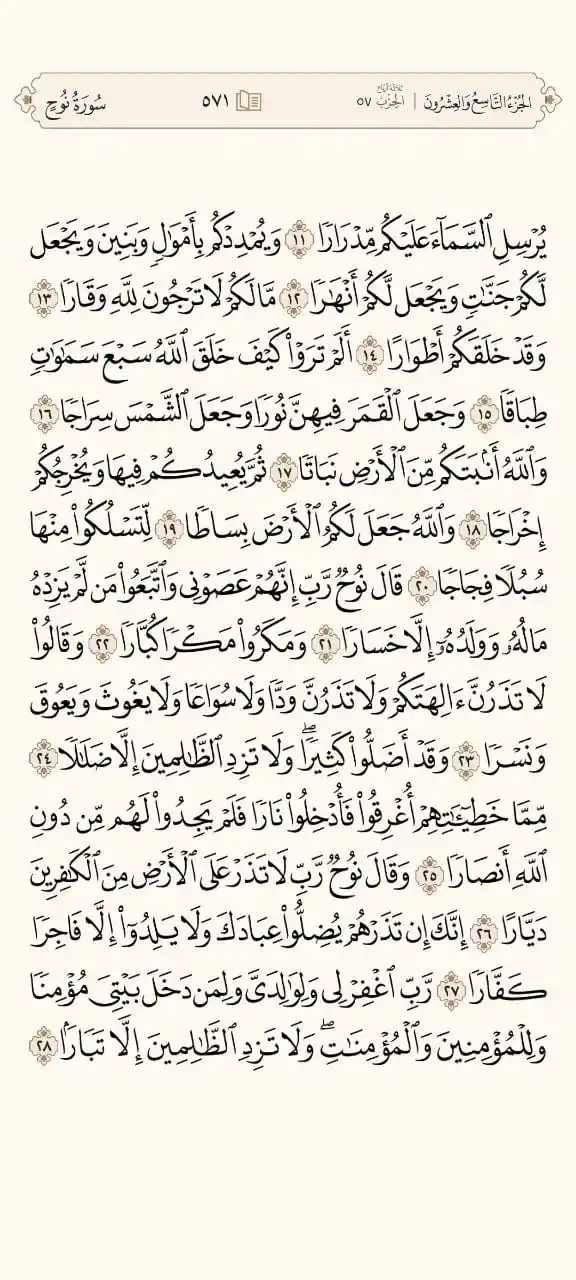 الجُزْءُ التَّاسِعُ وَالعِشْرُونَ | الحِزْبُ ٥٧ ٥٧١ سُورَةُ نُوحٍ
يُرْسِلِ ٱلسَّمَآءَ عَلَيْكُم مِّدْرَارًا ١١ وَيُمْدِدْكُم بِأَمْوَٰلٍ وَبَنِينَ وَيَجْعَل
لَّكُمْ جَنَّٰتٍ وَيَجْعَل لَّكُمْ أَنْهَٰرًا ١٢ مَّا لَكُمْ لَا تَرْجُونَ لِلَّهِ وَقَارًا ١٣
وَقَدْ خَلَقَكُمْ أَطْوَارًا ١٤ أَلَمْ تَرَوْا۟ كَيْفَ خَلَقَ ٱللَّهُ سَبْعَ سَمَٰوَٰتٍ
طِبَاقًا ١٥ وَجَعَلَ ٱلْقَمَرَ فِيهِنَّ نُورًا وَجَعَلَ ٱلشَّمْسَ سِرَاجًا ١٦
وَٱللَّهُ أَنۢبَتَكُم مِّنَ ٱلْأَرْضِ نَبَاتًا ١٧ ثُمَّ يُعِيدُكُمْ فِيهَا وَيُخْرِجُكُمْ
إِخْرَاجًا ١٨ وَٱللَّهُ جَعَلَ لَكُمُ ٱلْأَرْضَ بِسَاطًا ١٩ لِّتَسْلُكُوا۟ مِنْهَا
سُبُلًا فِجَاجًا ٢٠ قَالَ نُوحٌ رَّبِّ إِنَّهُمْ عَصَوْنِى وَٱتَّبَعُوا۟ مَن لَّمْ يَزِدْهُ
مَالُهُۥ وَوَلَدُهُۥٓ إِلَّا خَسَارًا ٢١ وَمَكَرُوا۟ مَكْرًا كُبَّارًا ٢٢ وَقَالُوا۟
لَا تَذَرُنَّ ءَالِهَتَكُمْ وَلَا تَذَرُنَّ وَدًّا وَلَا سُوَاعًا وَلَا يَغُوثَ وَيَعُوقَ
وَنَسْرًا ٢٣ وَقَدْ أَضَلُّوا۟ كَثِيرًا ۖ وَلَا تَزِدِ ٱلظَّٰلِمِينَ إِلَّا ضَلَٰلًا ٢٤
مِّمَّا خَطِيٓـَٰٔتِهِمْ أُغْرِقُوا۟ فَأُدْخِلُوا۟ نَارًا فَلَمْ يَجِدُوا۟ لَهُم مِّن دُونِ
ٱللَّهِ أَنصَارًا ٢٥ وَقَالَ نُوحٌ رَّبِّ لَا تَذَرْ عَلَى ٱلْأَرْضِ مِنَ ٱلْكَٰفِرِينَ
دَيَّارًا ٢٦ إِنَّكَ إِن تَذَرْهُمْ يُضِلُّوا۟ عِبَادَكَ وَلَا يَلِدُوٓا۟ إِلَّا فَاجِرًا
كَفَّارًا ٢٧ رَّبِّ ٱغْفِرْ لِى وَلِوَٰلِدَىَّ وَلِمَن دَخَلَ بَيْتِىَ مُؤْمِنًا
وَلِلْمُؤْمِنِينَ وَٱلْمُؤْمِنَٰتِ ۖ وَلَا تَزِدِ ٱلظَّٰلِمِينَ إِلَّا تَبَارًۢا ٢٨